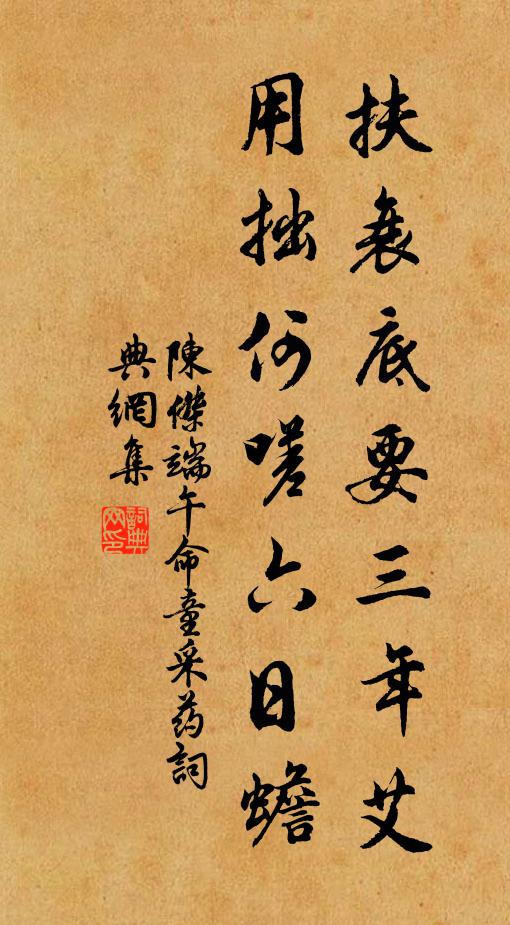 扶衰底要三年艾
用拙何嗟六日蟾
陳傑端午命童采药詞
典網集
詞典網印